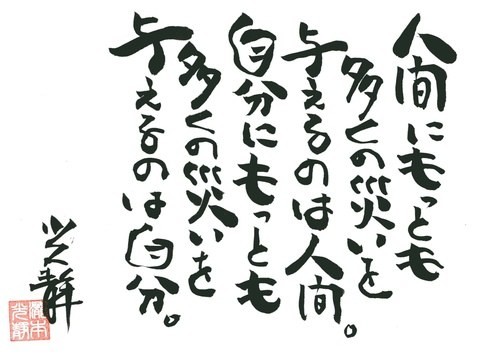 人間にもっとも
多くの災いを
与えるのは人間。
自分にもっとも
多くの災いを
与えるのは自分。